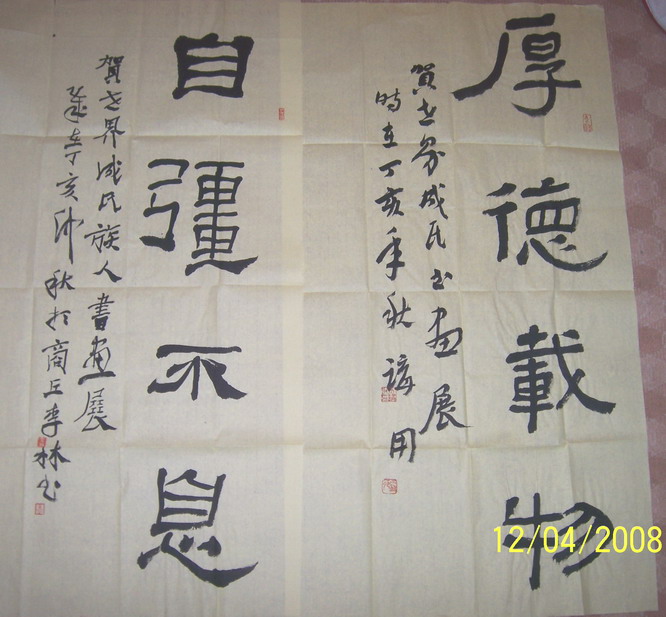 厚德載物
賀世界戚氏書画展
時在丁亥年秋 用
自彊不息
賀世界戚氏族人書画展
歲在丁亥仲秋於商丘李林书
12/04/2008